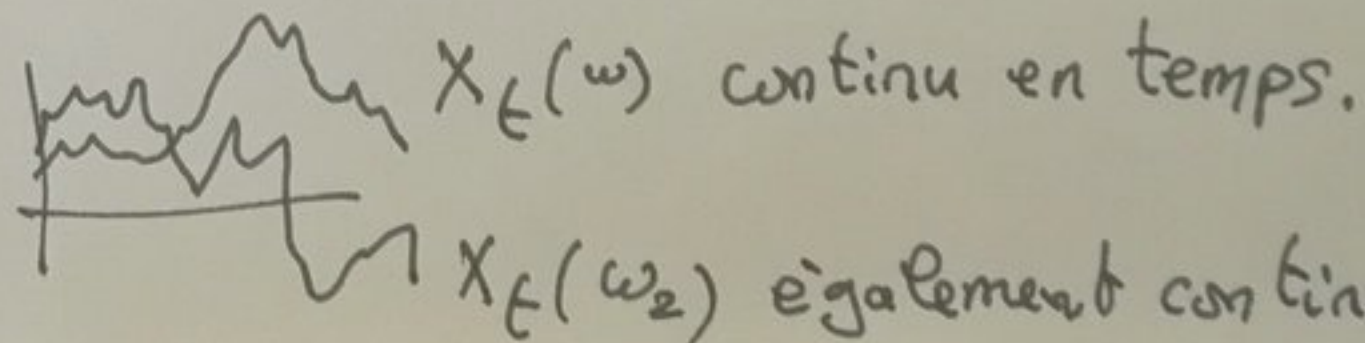 X_t(ω) continu en temps.
X_t(ω₂) également contin